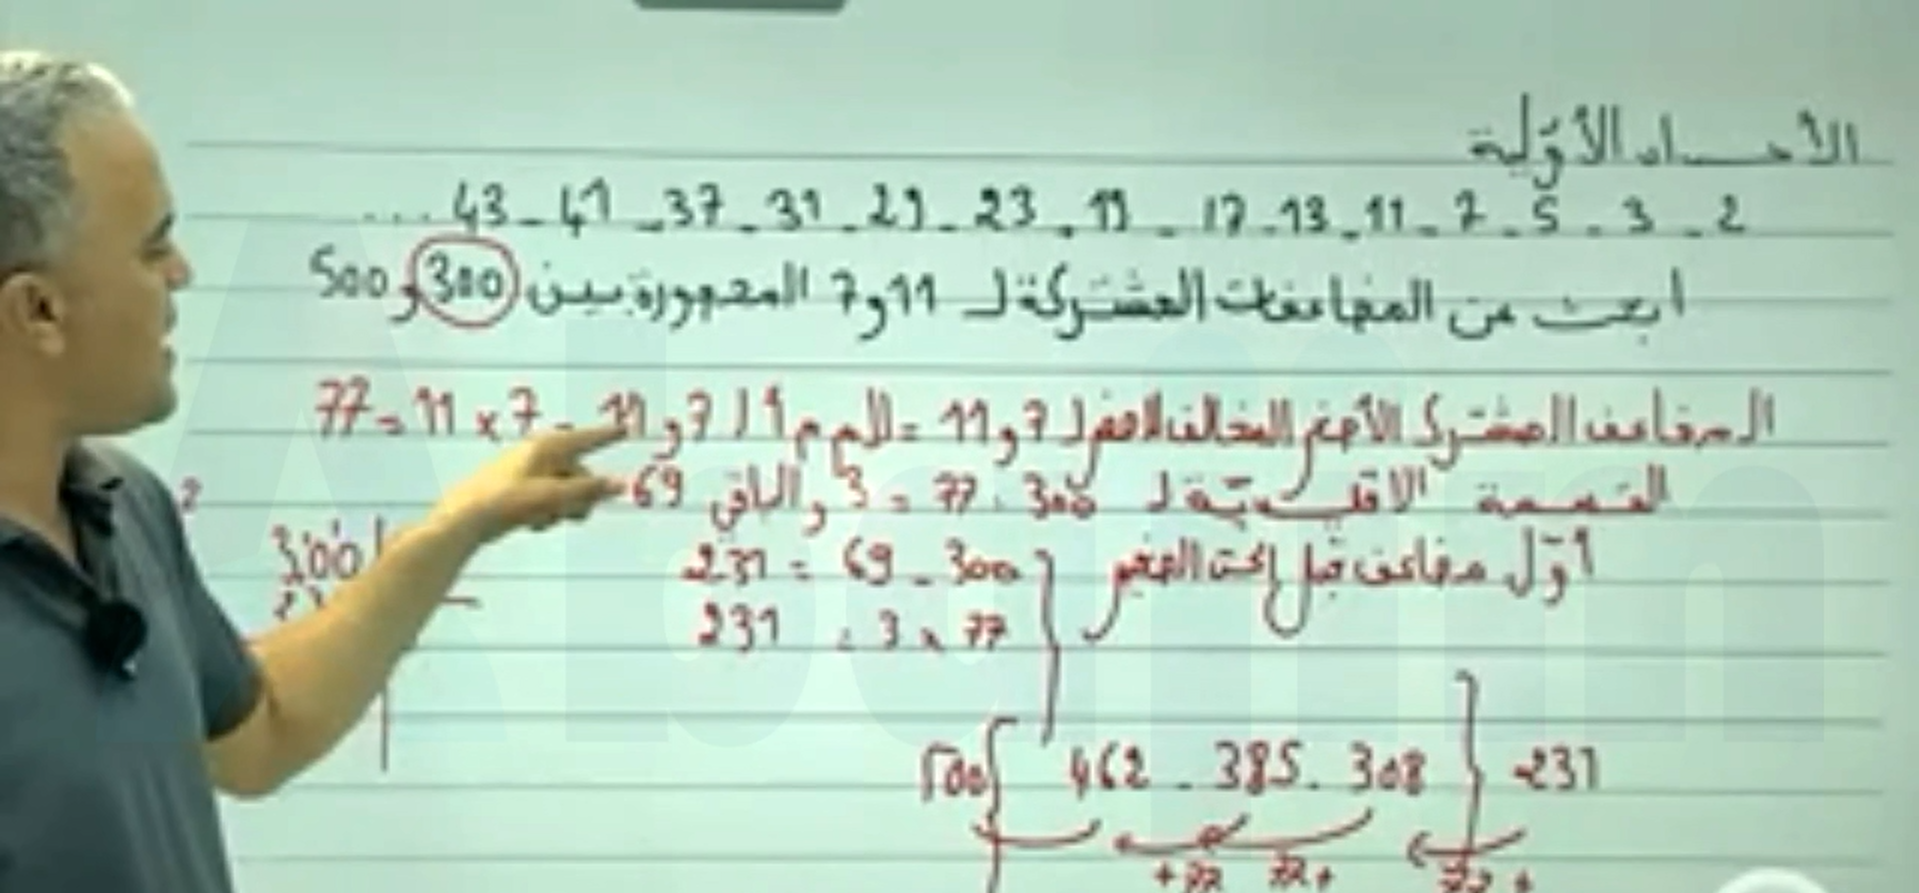 الأعداد الأوّلية
2 - 3 - 5 - 7 - 11 - 13 - 17 - 19 - 23 - 29 - 31 - 37 - 41 - 43 ...
ابحث عن المضاعفات المشتركة لـ 11 و 7 المحصورة بين 300 و 500
المضاعف المشترك الأصغر المخالف للصفر لـ 7 و 11 = الـ م م أ لـ 7 و 11 = 7 × 11 = 77
القسمة الاقليدية لـ 300 : 77 = 3 والباقي 69
أوّل مضاعف قبل الحد الصغير
300 - 69 = 231
77 × 3 = 231
300
231 308 - 385 - 462 500
+77 +77 +77